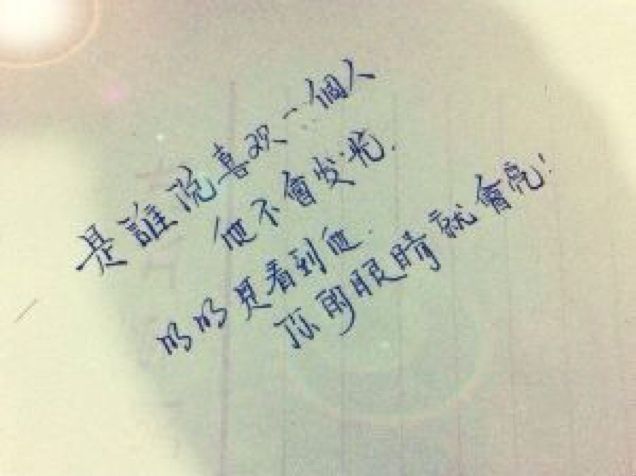 是誰說喜欢一個人
他不會发光.
明明是看到他.
你的眼睛就會亮!